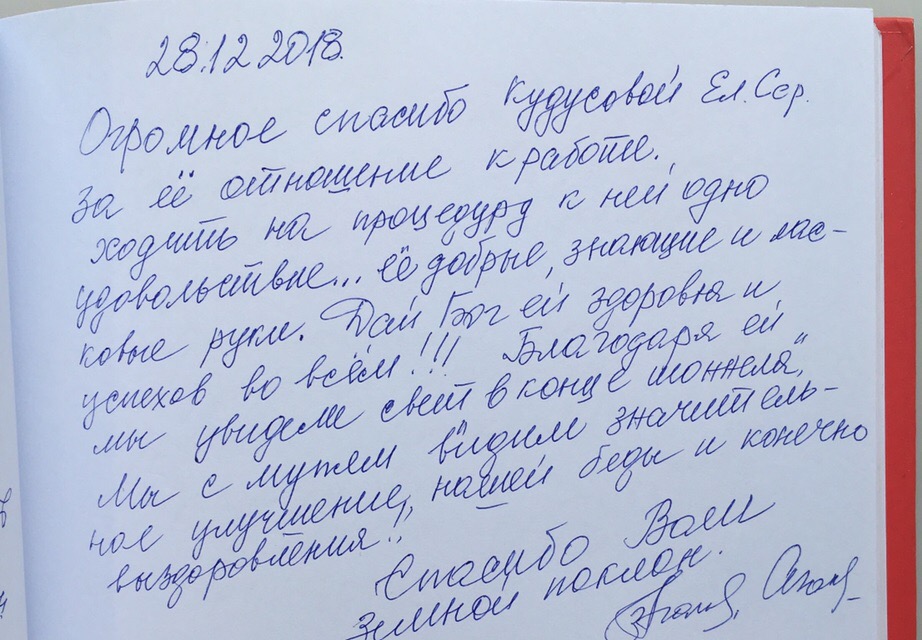 28.12 2018.
Огромное спасибо Кудусовой Ел. Сер.
за её отношение к работе.
Ходить на процедуру к ней одно
удовольствие... её добрые, знающие и лас-
ковые руки. Дай Бог ей здоровья и
успехов во всём!!! Благодаря ей
мы увидели свет в конце тоннеля".
Мы с мужем видим значитель-
ное улучшение, нашей беды и конечно
выздоровления!
Спасибо Вам
земной поклон.